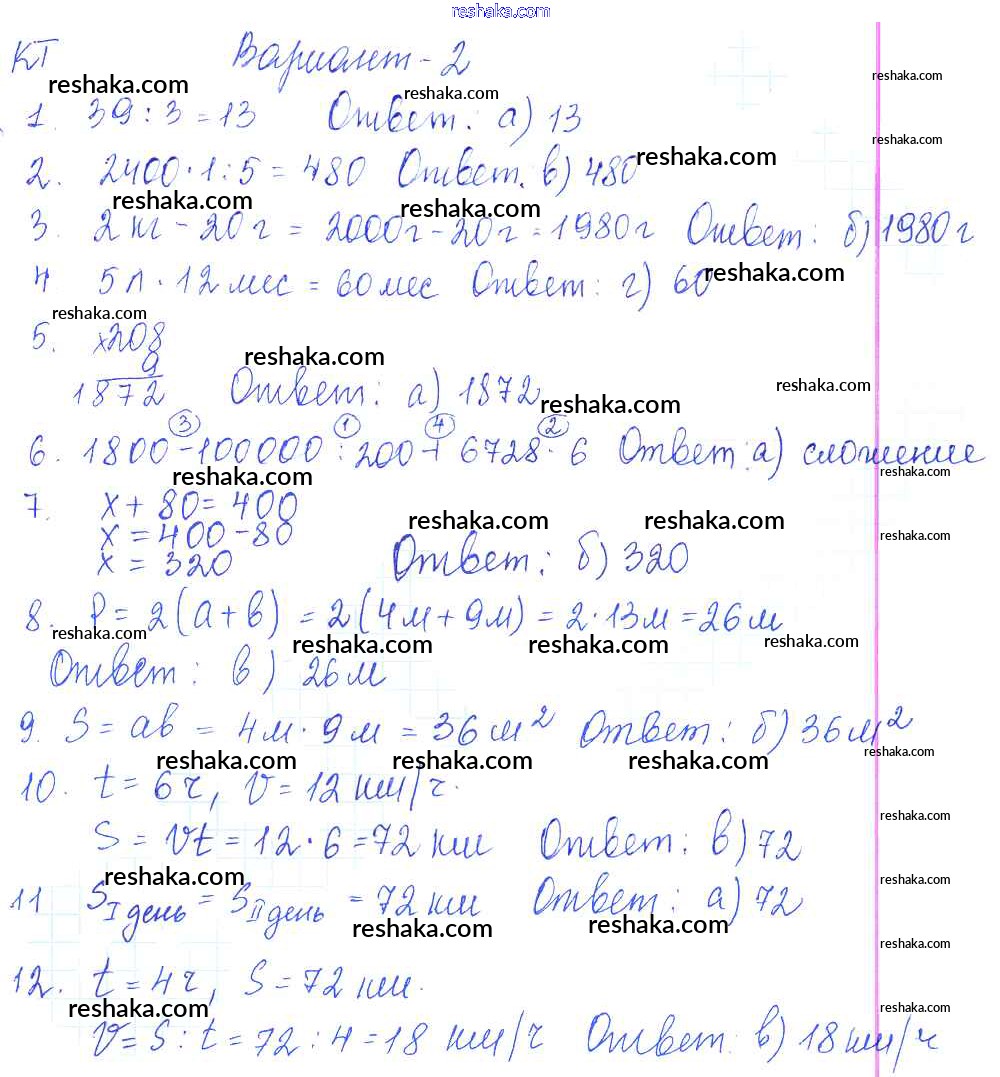 reshaka.com
КТ Вариант - 2
reshaka.com reshaka.com reshaka.com
1. 39 : 3 = 13 Ответ: а) 13
reshaka.com
2. 2400 · 1 : 5 = 480 Ответ. в) 480 reshaka.com
reshaka.com reshaka.com
3. 2 кг - 20 г = 2000г - 20 г = 1980 г Ответ: б) 1980 г
4 5 л · 12 мес = 60 мес Ответ: г) 60 reshaka.com
reshaka.com
5. х208
reshaka.com
9
reshaka.com
1872 Ответ: а) 1872
reshaka.com
3 1 4 2
6. 1800 - 100000 : 200 + 6728 · 6 Ответ: а) сложение
reshaka.com reshaka.com
7. х + 80 = 400
х = 400 - 80
reshaka.com reshaka.com reshaka.com
х = 320 Ответ: б) 320
8. P = 2(a + b) = 2(4м + 9м) = 2 · 13м = 26 м
reshaka.com reshaka.com reshaka.com reshaka.com
Ответ: в) 26 м
9. S = ab = 4 м · 9 м = 36 м² Ответ: б) 36 м²
reshaka.com reshaka.com reshaka.com reshaka.com
10. t = 6 ч, V = 12 км/ч.
reshaka.com
S = Vt = 12 · 6 = 72 км Ответ: в) 72
reshaka.com reshaka.com
11 S I день = S II день = 72 км Ответ: а) 72
reshaka.com reshaka.com
reshaka.com
12. t = 4 ч, S = 72 км.
reshaka.com reshaka.com
V = S : t = 72 : 4 = 18 км/ч Ответ: в) 18 км/ч